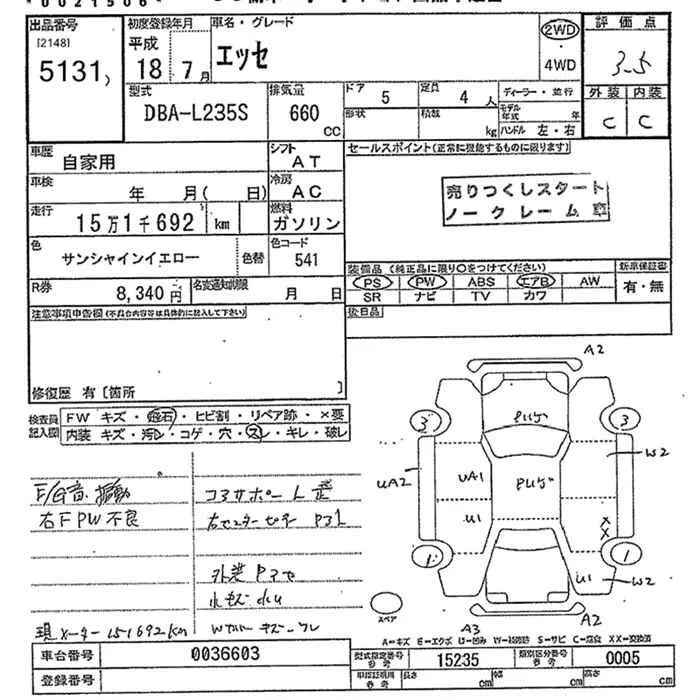 *0021506*
出品番号 初度登録年月 車名・グレード 2WD 評価点
[2148] 平成 エッセ 4WD 3.5
5131 18年7月
型式 排気量 ドア 5 定員 4人 ディーラー・並行 外装 内装
DBA-L235S 660 CC 形状 積載 kg モデル年式 年 ハンドル 左・右 C C
車歴 自家用 シフト AT セールスポイント(正常に機能するものに限ります)
車検 年 月( 日) 冷房 AC
売りつくしスタート
ノークレーム
走行 15万1千692 km 燃料 ガソリン
色 サンシャインイエロー 色替 色コード 541
装備品 (純正品に限り○をつけてください) 新車保証書
PS PW ABS エアB AW 有・無
SR ナビ TV カワ
R券 8,340円 名変通知期限 月 日
後日品
注意事項申告欄(不具合内容等は具体的に記入して下さい)
修復歴 有[箇所 ]
検査員記入図 FW キズ・飛石・ヒビ割・リペア跡・×要
内装 キズ・汚レ・コゲ・穴・スレ・キレ・破レ
A2
3 3
W2
UA2 UA1
U1
XX
1 1
U1 W2
A3 A2
スペア
E/G音、振動 コアサポート 歪
右F PW不良 右センターピラー
現メーター151692km
A=キズ E=エクボ U=凹み W=補修跡 S=サビ C=腐食 XX=交換済
車台番号 0036603 型式指定番号 参考 15235 類別区分番号 参考 0005
登録番号 車検証明用 参考 長さ cm 幅 cm 高さ cm